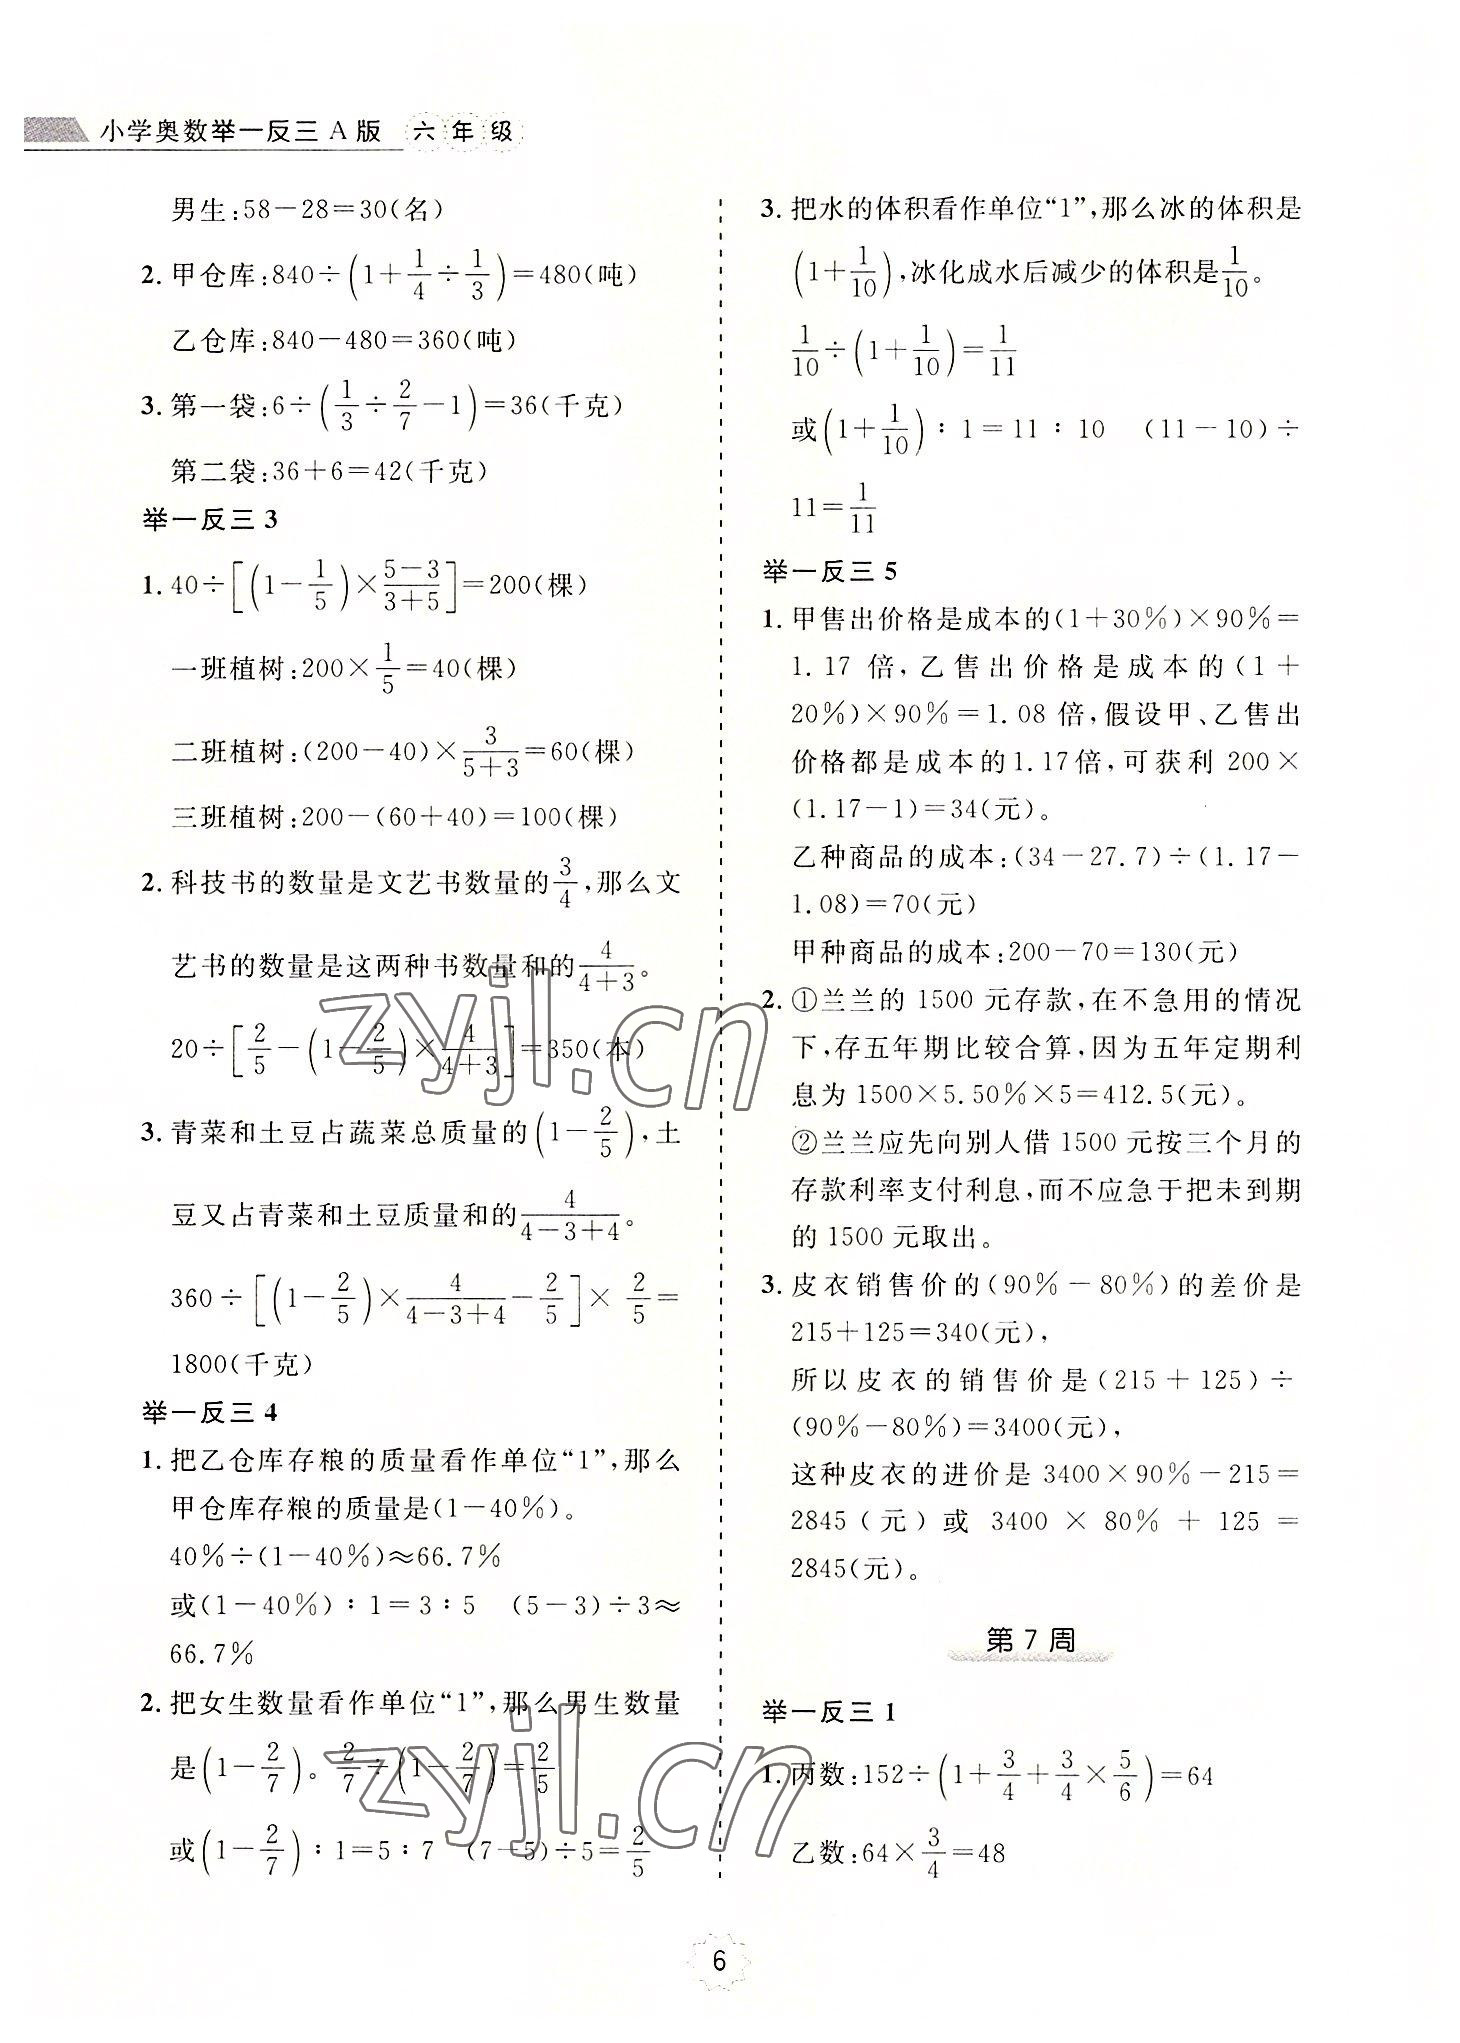 小学奥数举一反三A版 六年级
男生:58-28=30(名)
2. 甲仓库:840÷(1+1/4÷1/3)=480(吨)
乙仓库:840-480=360(吨)
3. 第一袋:6÷(1/3÷2/7-1)=36(千克)
第二袋:36+6=42(千克)
举一反三3
1. 40÷[(1-1/5)×(5-3)/(3+5)]=200(棵)
一班植树:200×1/5=40(棵)
二班植树:(200-40)×3/(5+3)=60(棵)
三班植树:200-(60+40)=100(棵)
2. 科技书的数量是文艺书数量的3/4,那么文
艺书的数量是这两种书数量和的4/(4+3)。
20÷[2/5-(1-2/5)×4/(4+3)]=350(本)
3. 青菜和土豆占蔬菜总质量的(1-2/5),土
豆又占青菜和土豆质量和的4/(4-3+4)。
360÷[(1-2/5)×4/(4-3+4)-2/5]×2/5=
1800(千克)
举一反三4
1. 把乙仓库存粮的质量看作单位“1”,那么
甲仓库存粮的质量是(1-40%)。
40%÷(1-40%)≈66.7%
或(1-40%)∶1=3∶5 (5-3)÷3≈
66.7%
2. 把女生数量看作单位“1”,那么男生数量
是(1-2/7)。2/7÷(1-2/7)=2/5
或(1-2/7)∶1=5∶7 (7-5)÷5=2/5
3. 把水的体积看作单位“1”,那么冰的体积是
(1+1/10),冰化成水后减少的体积是1/10。
1/10÷(1+1/10)=1/11
或(1+1/10)∶1=11∶10 (11-10)÷
11=1/11
举一反三5
1. 甲售出价格是成本的(1+30%)×90%=
1.17倍,乙售出价格是成本的(1+
20%)×90%=1.08倍,假设甲、乙售出
价格都是成本的1.17倍,可获利200×
(1.17-1)=34(元)。
乙种商品的成本:(34-27.7)÷(1.17-
1.08)=70(元)
甲种商品的成本:200-70=130(元)
2. ①兰兰的1500元存款,在不急用的情况
下,存五年期比较合算,因为五年定期利
息为1500×5.50%×5=412.5(元)。
②兰兰应先向别人借1500元按三个月的
存款利率支付利息,而不应急于把未到期
的1500元取出。
3. 皮衣销售价的(90%-80%)的差价是
215+125=340(元),
所以皮衣的销售价是(215+125)÷
(90%-80%)=3400(元),
这种皮衣的进价是3400×90%-215=
2845(元)或3400×80%+125=
2845(元)。
第7周
举一反三1
1. 丙数:152÷(1+3/4+3/4×5/6)=64
乙数:64×3/4=48
6
zyjl.cn
zyjl.cn